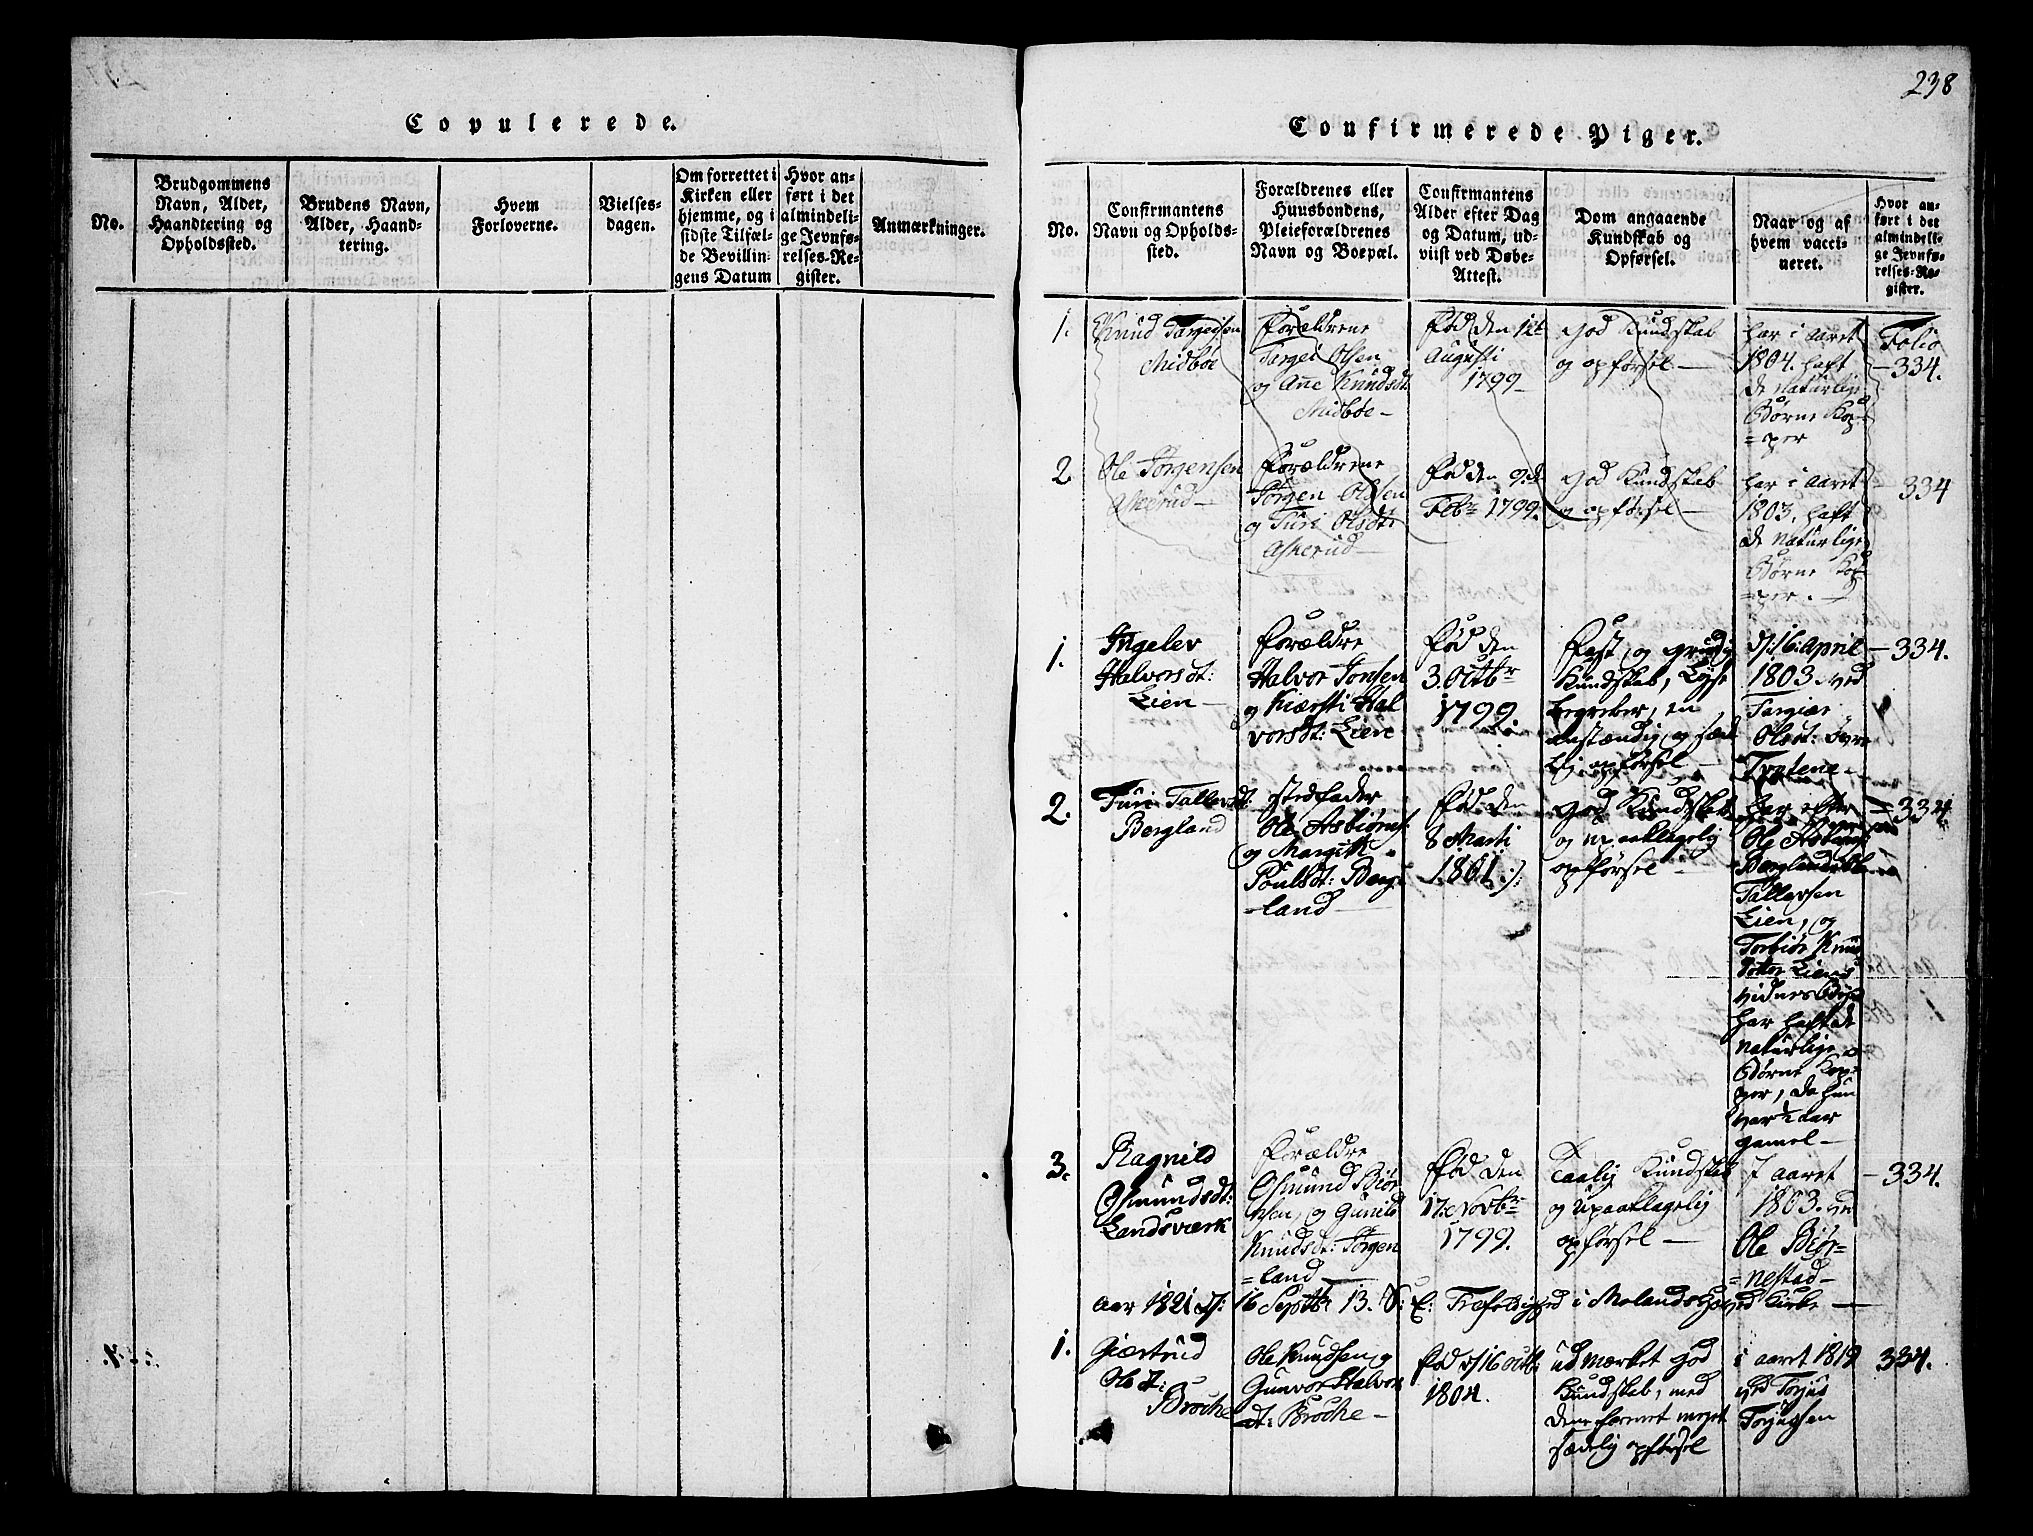 Copulerede.
No.
Brudgommens
Navn, Alder,
Haandtering og
Opholdssted.
Brudens Navn,
Alder, Haand-
tering.
Hvem
Forloverne.
Vielses-
dagen.
Om forrettet i
Kirken eller
hjemme, og i
sidste Tilfæl-
de Bevillin-
gens Datum
Hvor an-
ført i det
almindeli-
ge Jevnfø-
relses-Re-
gister.
Anmærkninger.
238
Confirmerede Piger.
No.
Confirmantens
Navn og Opholds-
sted.
Forældrenes eller
Huusbondens,
Pleieforældrenes
Navn og Boepæl.
Confirmantens
Alder efter Dag
og Datum, ud-
viist ved Døbe-
Attest.
Dom angaaende
Kundskab og
Opførsel.
Naar og af
hvem vacci-
neret.
Hvor an-
ført i det
almindeli-
ge Jevnfø-
relses-Re-
gister.
1.
Knud Targeisen
Midbøe
Forældrene
Targei Olsen
og Anne Knudsdt
Midbøe-
Fød den 12t
Augusti
1799-
god Kundskab
og opførsel-
har i aaret
1804. haft
de naturlige
Børne Kop-
=per
Folio
-334.
2
Ole Jørgensen
Askerud-
Forældrene
Jørgen Olsen
og Turi Olsdt
Askerud-
Fød den 9.de
Febr 1799.
god Kundskab
og opførsel-
har i aaret
1803. haft
de naturlige
Børne Kop-
=per.
-334
1.
Ingelev
Halvorsdt:
Lien-
Forældre
Halvor Jonsen
og Kiersti Hal
vorsdt: Lien
Fød den
3. Octbr
1799.
Fast, og grundig
Kundskab, Lyse
begreber, en
anstændig og sæde
lig opførsel-
d: 16 April
1803. ved
Targier
Olsdt: øvre
Trotene-
-334.
2.
Turi Tallevsdt:
Bergland
Stedfader
Ole Asbiørns.
og Margith
Poulsdt: Berg-
=land-
Fød den
8 Marti
1801
god Kundskab
og upaaklagelig
opførsel-
har efter
Ole Asbiørns
Bergland
Tallevsen
Lien, og
Torbiør Knuds
dotter Liens
vidnesbyrd
har haft de
naturlige
Børne Kop-
per, da hun
var ½ aar
gamel-
=334.
3.
Ragnild
Osmundsdt:
Landsværk
Forældre
Osmund Biør
nsen og Gunild
Knudsdt: Jørgen
=land
Fød den
17. Novbr
1799.
Taalig Kundskab
og upaaklagelig
opførsel-
I aaret
1803. ved
Ole Biør=
=nestad-
-334.
Aar 1821 d: 16 Septbr 13. S: E: Trefoldighed i Molands Hoved Kirke-
1.
Giertrud
Olsdt:
Broche
Ole Knudsen og
Gunvor Halvors
dt: Broche-
Fød d/16 octbr
1804.
udmærket god
Kundskab, med
den forenet meget
sædelig opførsel
i aaret 1819
ved Torjus
Torjussen
334.